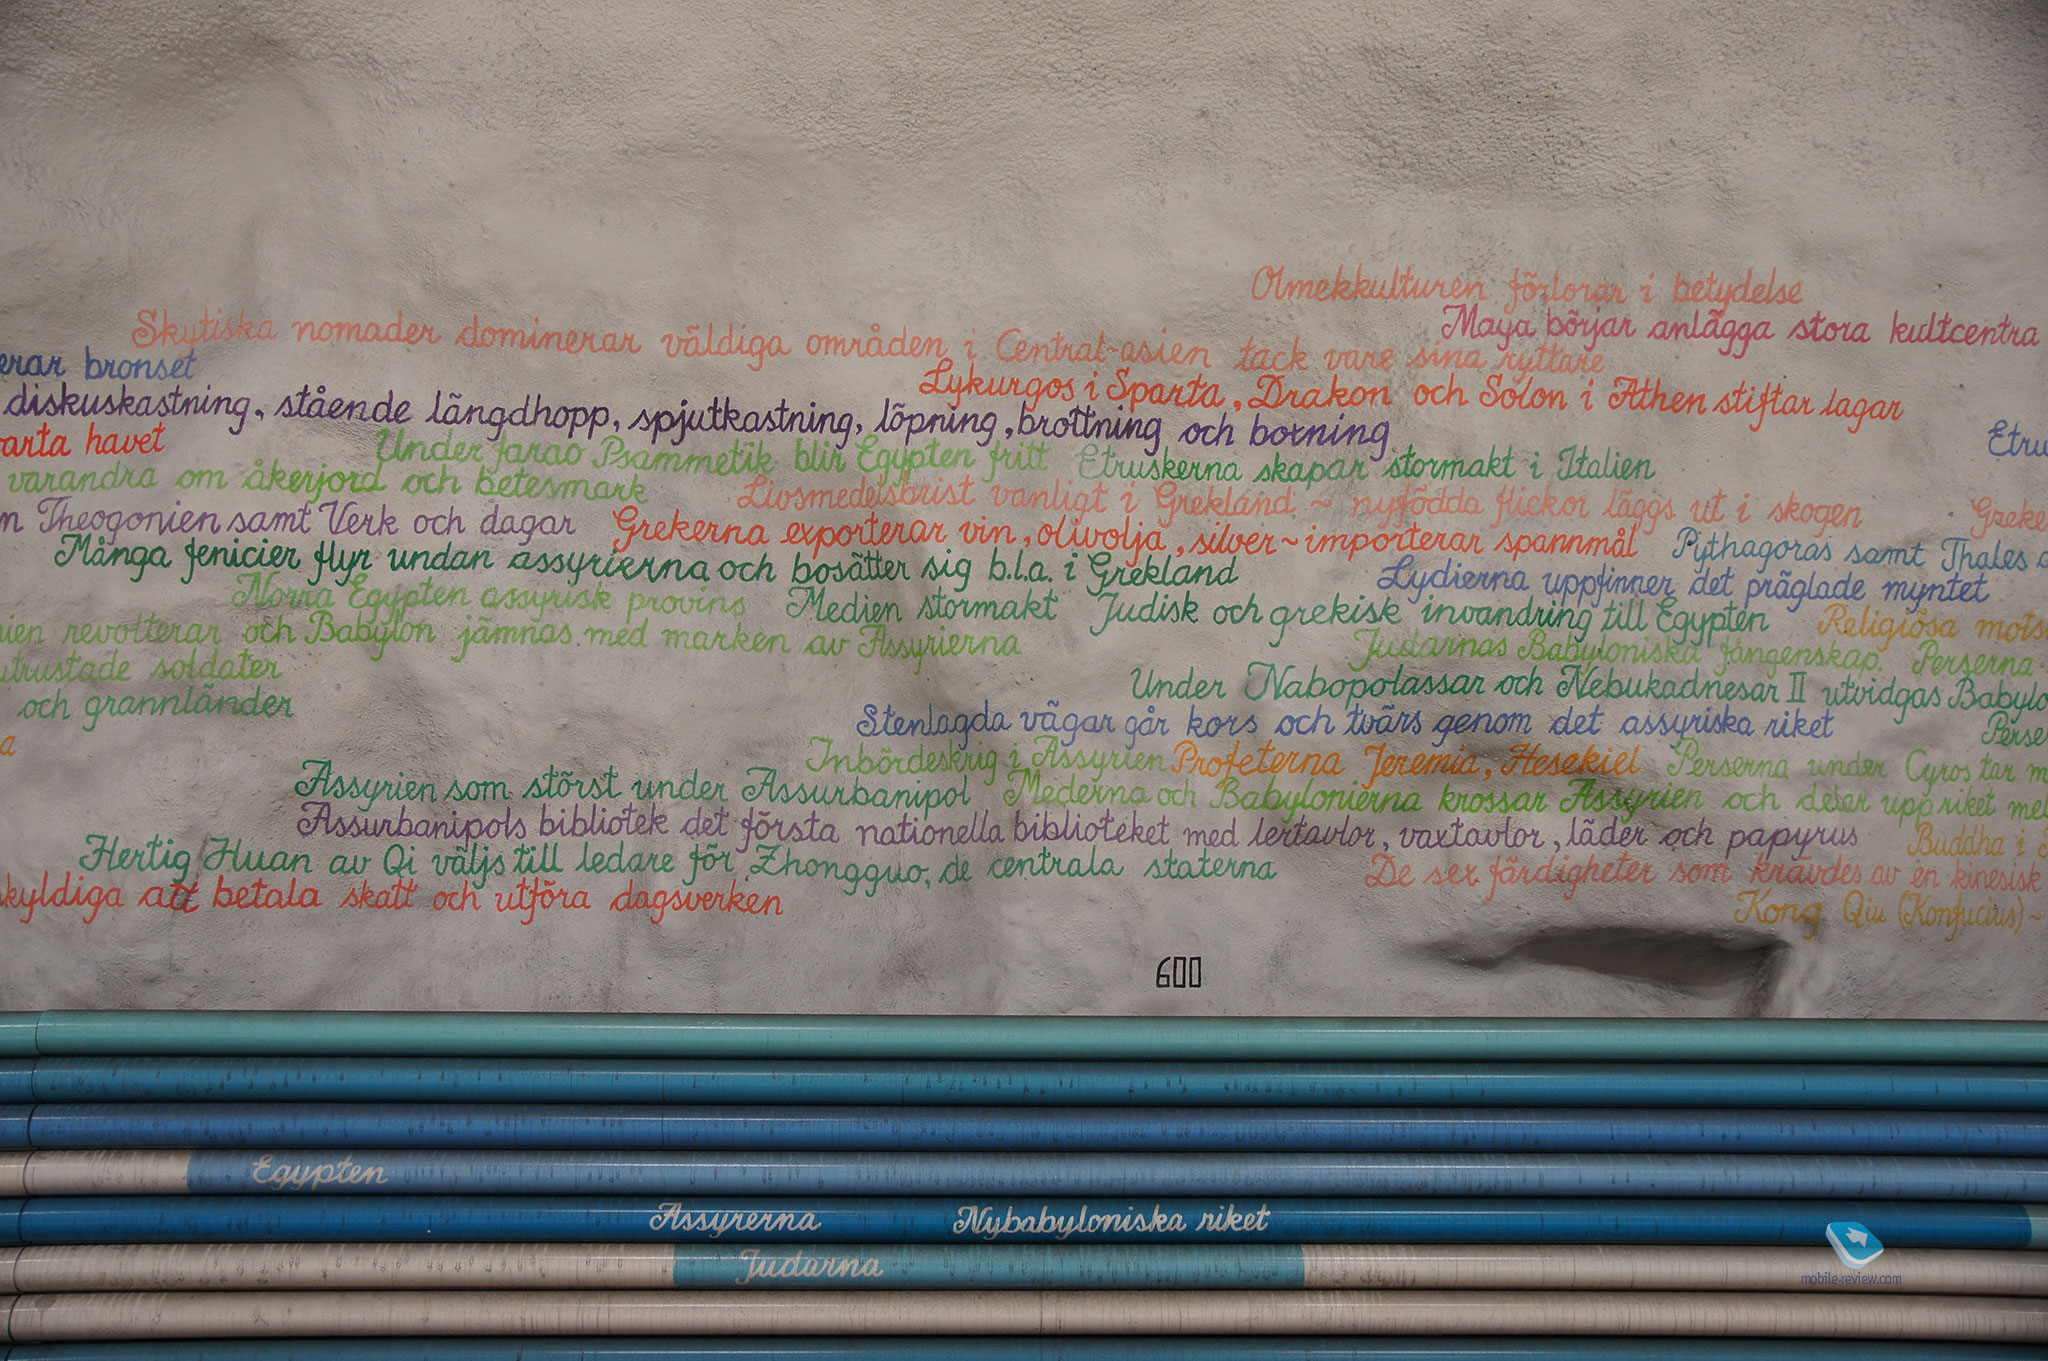 Olmekkulturen förlorar i betydelse
Maya börjar anlägga stora kultcentra
Skytiska nomader dominerar väldiga områden i Central-asien tack vare sina ryttare
erar bronset
Lykurgos i Sparta, Drakon och Solon i Athen stiftar lagar
diskuskastning, stående längdhopp, spjutkastning, löpning, brottning och boxning
Etru
arta havet
Under farao Psammetik blir Egypten fritt Etruskerna skapar stormakt i Italien
varandra om åkerjord och betesmark
Livsmedelsbrist vanligt i Grekland ~ nyfödda flickor läggs ut i skogen
Greke
n Theogonien samt Verk och dagar
Grekerna exporterar vin, olivolja, silver ~ importerar spannmål
Pythagoras samt Thales
Många fenicier flyr undan assyrierna och bosätter sig b.l.a. i Grekland
Lydierna uppfinner det präglade myntet
Norra Egypten assyrisk provins
Medien stormakt Judisk och grekisk invandring till Egypten
Religiösa mots
ien revolterar och Babylon jämnas med marken av Assyrierna
Judarnas Babyloniska fångenskap. Perserna
utrustade soldater
Under Nabopolassar och Nebukadnesar II utvidgas Babylo
och grannländer
Stenlagda vägar går kors och tvärs genom det assyriska riket
Perse
a
Inbördeskrig i Assyrien Profeterna Jeremia, Hesekiel Perserna under Cyros tar m
Assyrien som störst under Assurbanipol Mederna och Babylonierna krossar Assyrien och delar upp riket mel
Assurbanipols bibliotek det första nationella biblioteket med lertavlor, vaxtavlor, läder och papyrus
Buddha i
Hertig Huan av Qi väljs till ledare för, Zhongguo, de centrala staterna
De sex färdigheter som krävdes av en kinesisk
kyldiga att betala skatt och utföra dagsverken
Kong Qiu (Konfucius) ~
600
Egypten
Assyrerna Nybabyloniska riket
Judarna
mobile-review.com